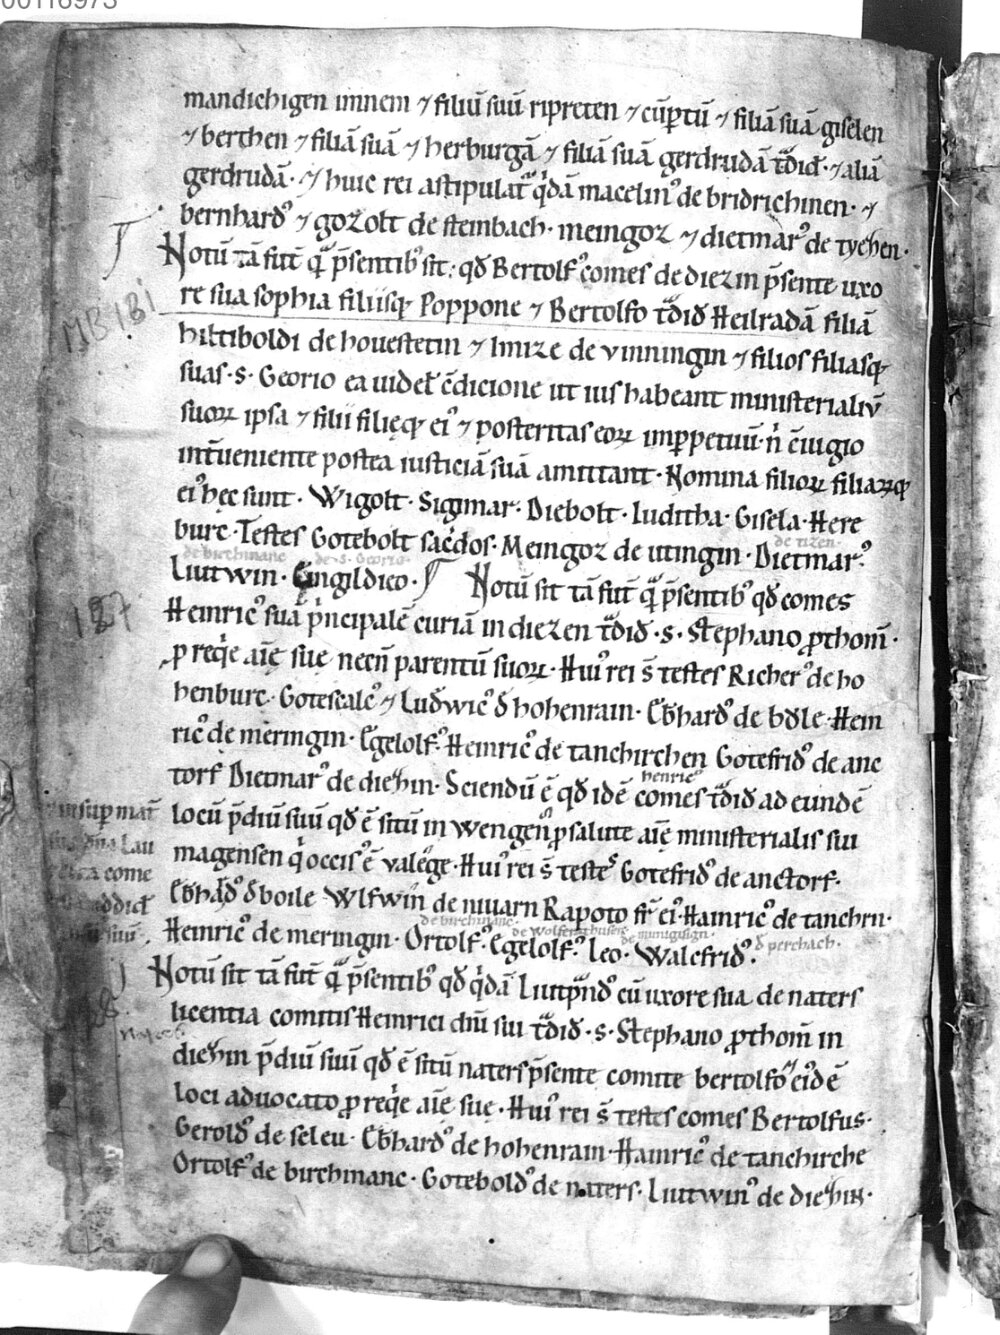 00116973
mandichigen imnem ⁊ filiū suū ripreten ⁊ cūptū ⁊ filiā suā giselen
⁊ berthen ⁊ filiā suā ⁊ herburgā ⁊ filiā suā gerdrudā t̄did ⁊ aliā
gerdrudā · ⁊ huic rei astipulat̄ q̇dā macelin⁹ de bridrichinen · ⁊
bernhard⁹ ⁊ gozolt de steinbach · meingoz ⁊ dietmar⁹ de tyezhen ·
Notū tā fut̄ qā p̄sentib⁹ sit : qđ Bertolf⁹ comes de diezin p̄sente uxo
MB 181
re sua sophia filiisq; Poppone ⁊ Bertolfo t̄diđ Heilradā filiā
hiltiboldi de houestetin ⁊ Imize de vinningin ⁊ filios filiasq;
suas · s · Georio ea uidel̄ c̄dicione ut ius habeant ministerialiū
suoꝝ ipsa ⁊ filii filięq; ei⁹ ⁊ posteritas eoꝝ imꝑpetuū · n̄ c̄iugio
int̄ueniente postea iusticiā suā amittant · Nomina filioꝝ filiaꝝq;
ei⁹ hec sunt · Wigolt · Sigmar · Diebolt · Luditha · Gisela · Here
burc · Testes Gotebolt sac̄dos · Meingoz de utingin · Dietmar⁹
de birchinane de · s · Georio de tizen ·
Liutwin · Eingildico · Notū sit tā fut̄ qā p̄sentib⁹ qđ comes
187
Heinric⁹ suā p̄ncipalē curiā in diezen t̄diđ · s · Stephano ꝓthom̄ ·
ꝓ reqe aīę suę necn̄ parentū suoꝝ · Hui⁹ rei s̄ testes Richer⁹ de ho
henburc · Gotescalc⁹ ⁊ Ludwic⁹ đ hohenrain · Ebhard⁹ de bole · Hein
ric⁹ de meringin · Egelolf⁹ · Heinric⁹ de tanchirchen Gotefrid⁹ de anc
torf Dietmar⁹ de diezhin · Sciendū ē qđ idē comes t̄diđ ad eundē
henric⁹
⁊ insuꝑ mat̄
locū p̄diū suū qđ ē sitū in wengen ꝓ salute aīę ministerialis sui
magensen q̇ occis⁹ ē valęge · Hui⁹ rei s̄ testes Gotefrid⁹ de anctorf ·
Ebhard⁹ đ boile Wlfwin de niuuarn Rapoto fr̄ ei⁹ · Hainric⁹ de tanchrn ·
de birchinanc · de Wolfenghusen de munigisign · đ perchach ·
Heinric⁹ de meringin · Ortolf⁹ · Egelolf⁹ · Leo · Walcfrid⁹ ·
Notū sit tā fut̄ qā p̄sentib⁹ qđ q̇dā Liutp̄nđ cū uxore sua de naters
licentia comitis Heinrici dn̄i sui t̄diđ · s · Stephano ꝓthom̄ in
diezhin p̄diū suū qđ ē sitū naters p̄sente comite bertolfo ei⁹dē
loci aduocato ꝓ reqe aīę suę · Hui⁹ rei s̄ testes comes Bertolfus ·
Gerold⁹ de seleu · Ebhard⁹ de hohenrain · Hainric⁹ de tanchirche
Ortolf⁹ de birchinanc · Gotebold⁹ de naters · Liutwin⁹ de diezhin ·